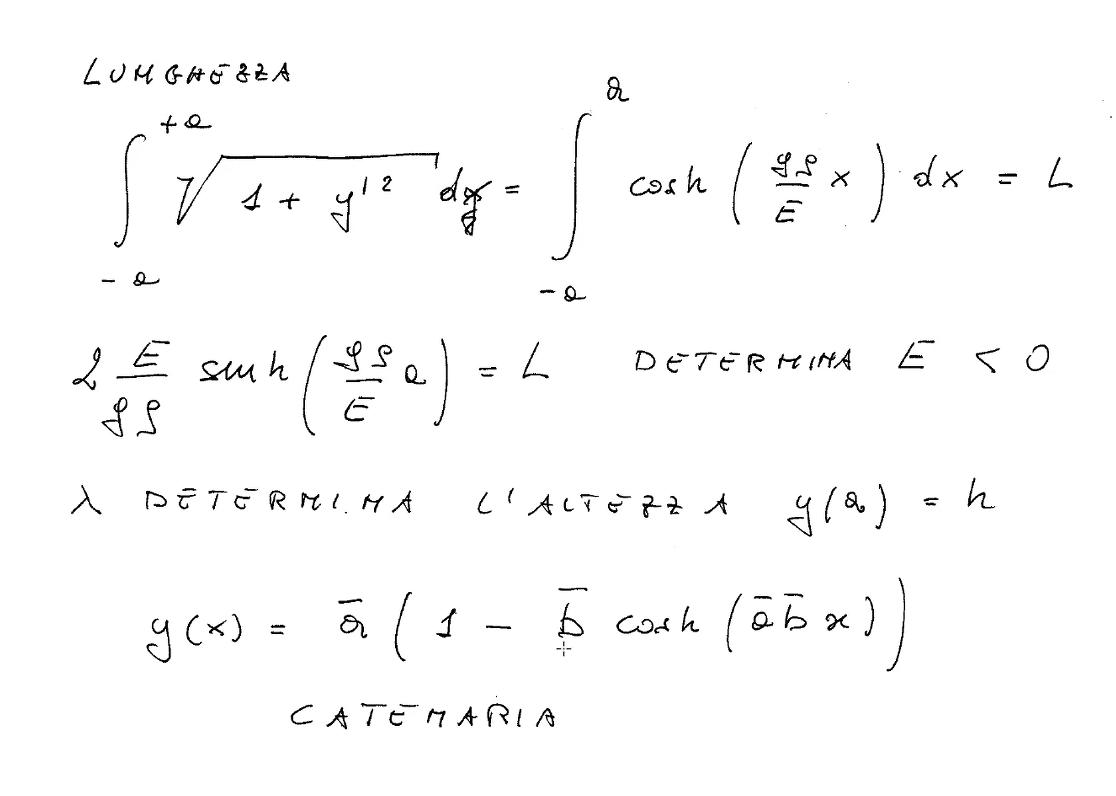 LUNGHEZZA
∫_{-a}^{+a} √(1 + y'²) dx = ∫_{-a}^{a} cosh (gρ/E x) dx = L
2 E/gρ sinh (gρ/E a) = L DETERMINA E < 0
λ DETERMINA L'ALTEZZA y(a) = h
y(x) = ā (1 - b̄ cosh (ā b̄ x))
CATENARIA